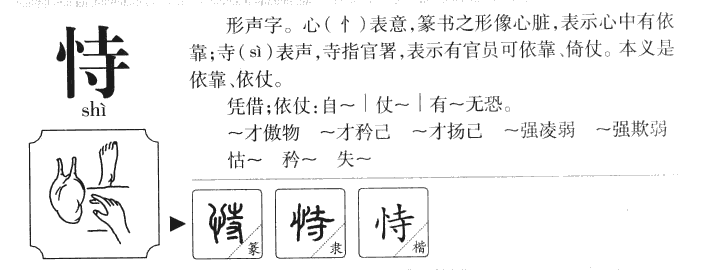 恃
shì
形声字。心(忄)表意,篆书之形像心脏,表示心中有依
靠;寺(sì)表声,寺指官署,表示有官员可依靠、倚仗。本义是
依靠、依仗。
凭借;依仗:自～｜仗～｜有～无恐。
～才傲物 ～才矜己 ～才扬己 ～强凌弱 ～强欺弱
怙～ 矜～ 失～
恃 篆 恃 隶 恃 楷